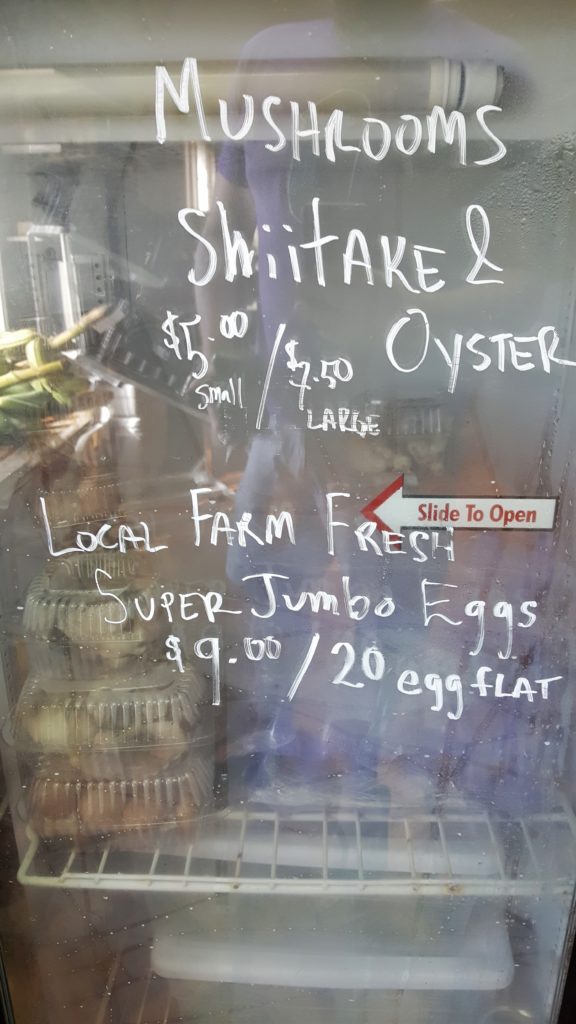 MUSHROOMS
ShiitAKE &
OYSTER
$5.00 / $7.50
small LARGE
Slide To Open
LOCAL FARM FRESH
SUPER Jumbo Eggs
$9.00 / 20 egg FLAT